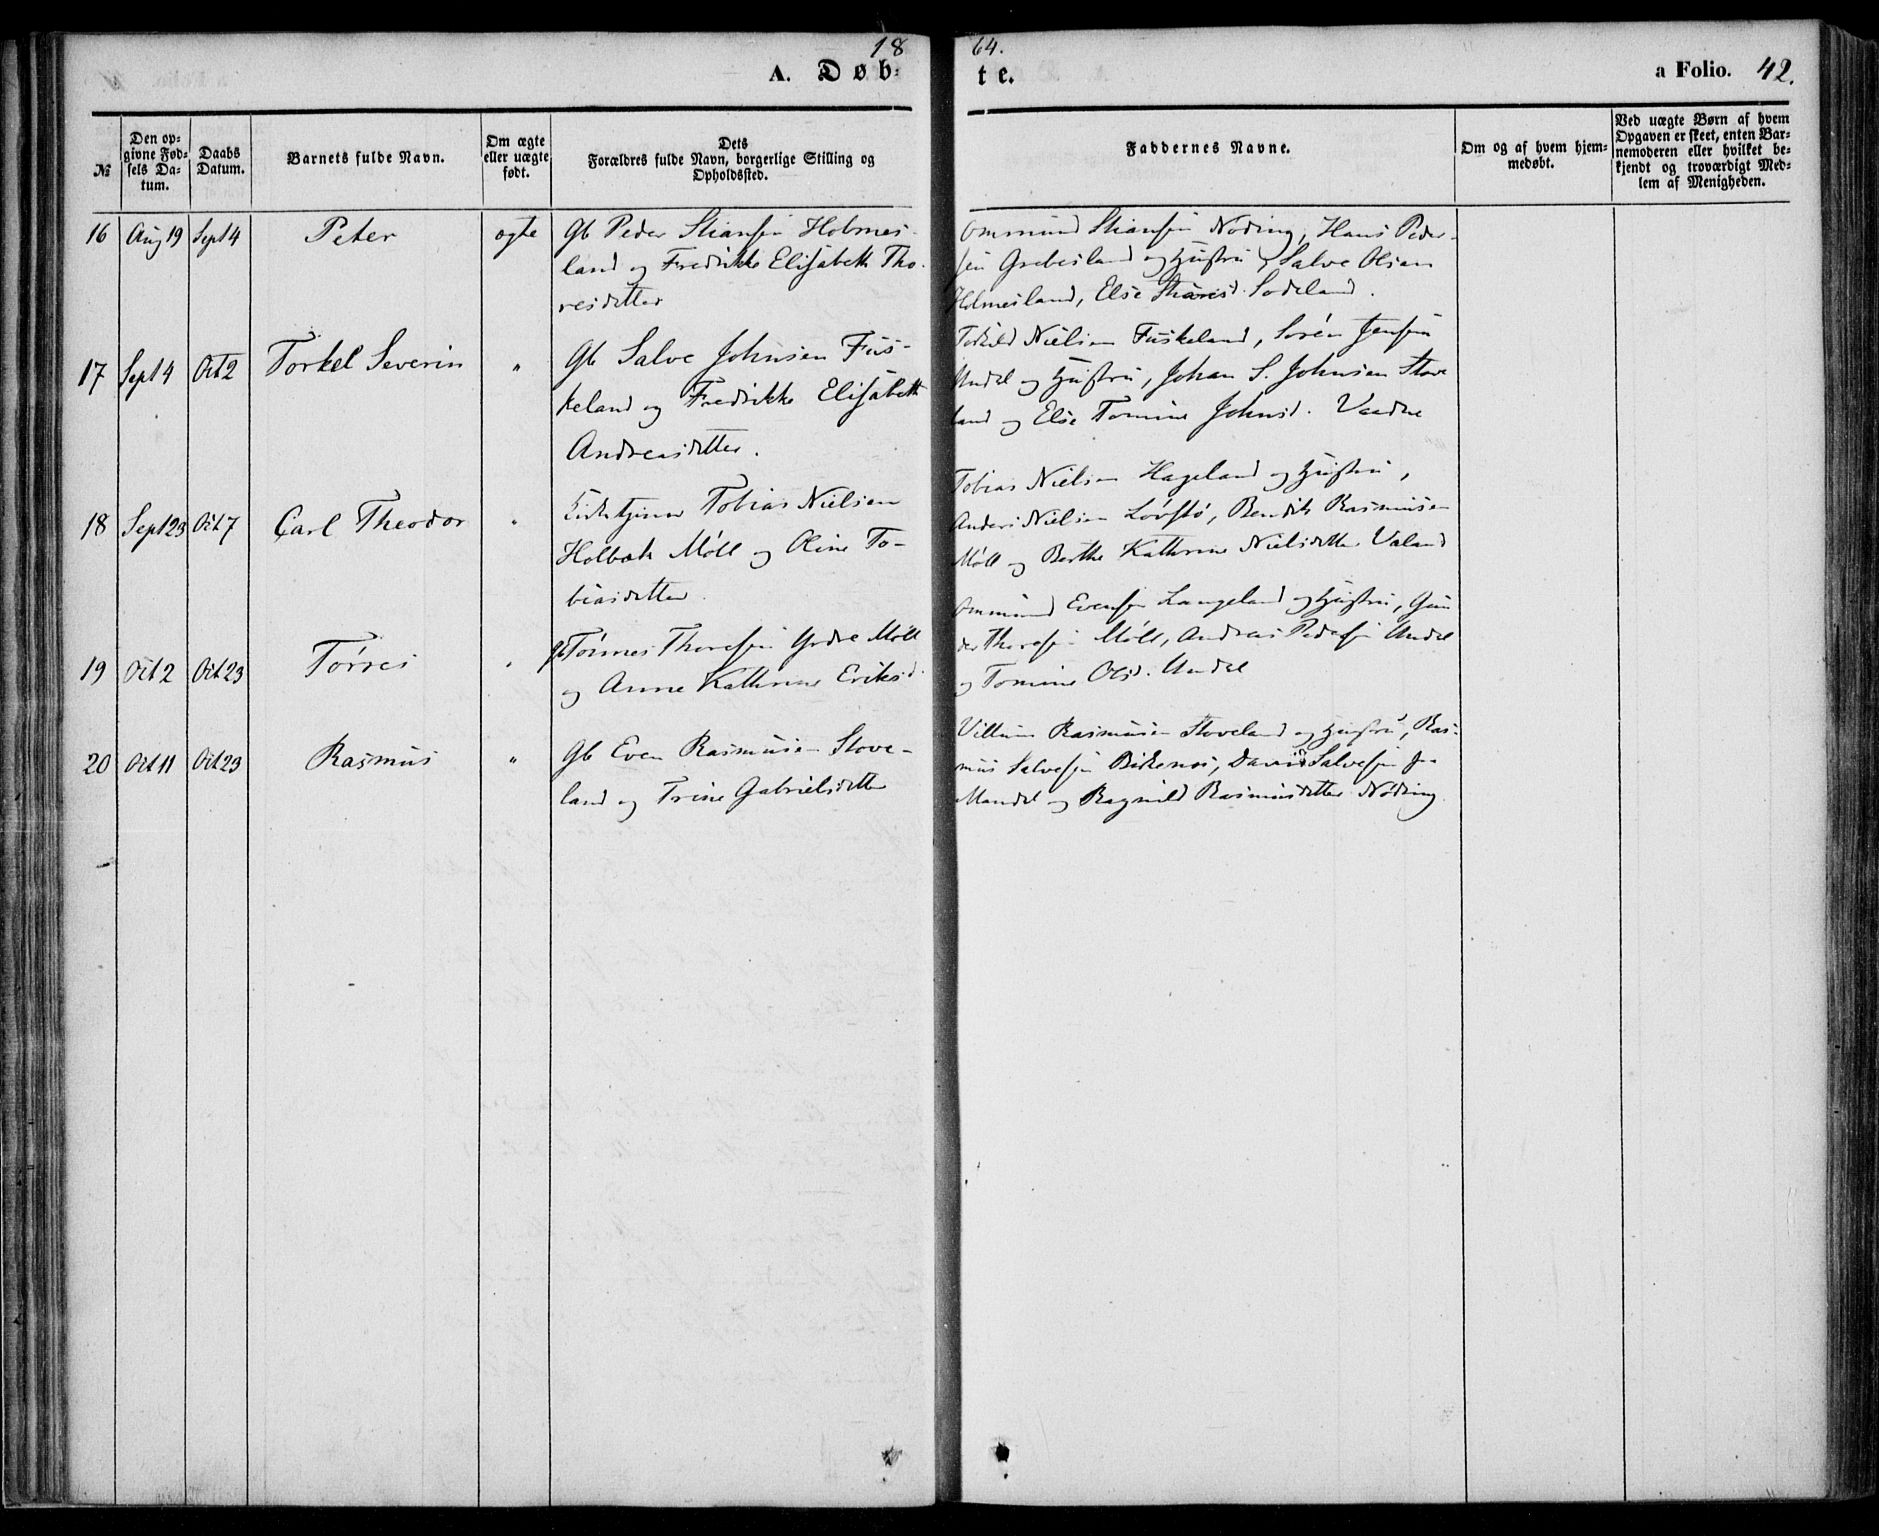 18 64.
A. Døb- te.
a Folio. 42.
№
Den op-
givne Fød-
sels Da-
tum.
Daabs
Datum.
Barnets fulde Navn.
Om ægte
eller uægte
født.
Dets
Forældres fulde Navn, borgerlige Stilling og
Opholdssted.
Faddernes Navne.
Om og af hvem hjem-
medøbt.
Ved uægte Børn af hvem
Opgaven er skeet, enten Bar-
nemoderen eller hvilket be-
kjendt og troværdigt Med-
lem af Menigheden.
16 Aug 19 Sept 4 Peter ægte Gb Peder Stiansen Holmes-
land og Fredrikke Elisabeth Tho-
resdatter
Ommund Stiansen Nøding, Hans Peder-
sen Grebesland og Hustru, Salve Olsen
Holmesland, Else Sodeland.
17 Sept 4 Oct 2 Torkel Severin " Gb Salve Johnsen Fus-
keland og Fredrikke Elisabeth
Andreasdatter.
Nielsen Fuskeland, Sørén Jensen
Undal og Hustru, Johan S. Johnsen Stove
land og Else Tomine Johnsd. Vaadne
18 Sept 23 Oct 7 Carl Theodor " Kirketjener Tobias Nielsen
Holbæk Møll og Oline To-
biasdatter
Tobias Nielsen Hageland og Hustru,
Anders Nielsen Løvstø, Bendik Rasmusen
Møll og Berthe Kathrine Nielsdatter Valand
19 Oct 2 Oct 23 Tørres " Gb Tønnes Thoresen Ydre Møll
og Anne Kathrine Eriksd.
Ommund Evensen Langeland og Hustru, Gun
der Thoresen Møll, Andreas Pedersen Undal
og Tomine Olsd. Undal
20 Oct 11 Oct 23 Rasmus " Gb Even Rasmusen Stove-
land og Trine Gabrielsdatter
Villum Rasmusen Stoveland og Hustru, Ras-
mus Salvesen Birkenes, David Salvesen fra
Mandal og Ragnild Rasmusdatter Nøding.